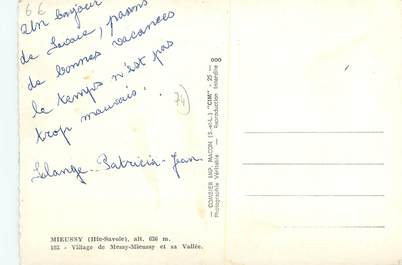 66
Un bonjour
de Savoie, passons
de bonnes vacances
le temps n'est pas
trop mauvais.
74)
Lalange - Patricia - Jean
MIEUSSY (Hte-Savoie), alt. 636 m.
103 - Village de Messy-Mieussy et sa Vallée.
COMBIER IMP. MACON (S.-&-L.) "CIM" - 25 -
Photographie Véritable - Reproduction Interdite